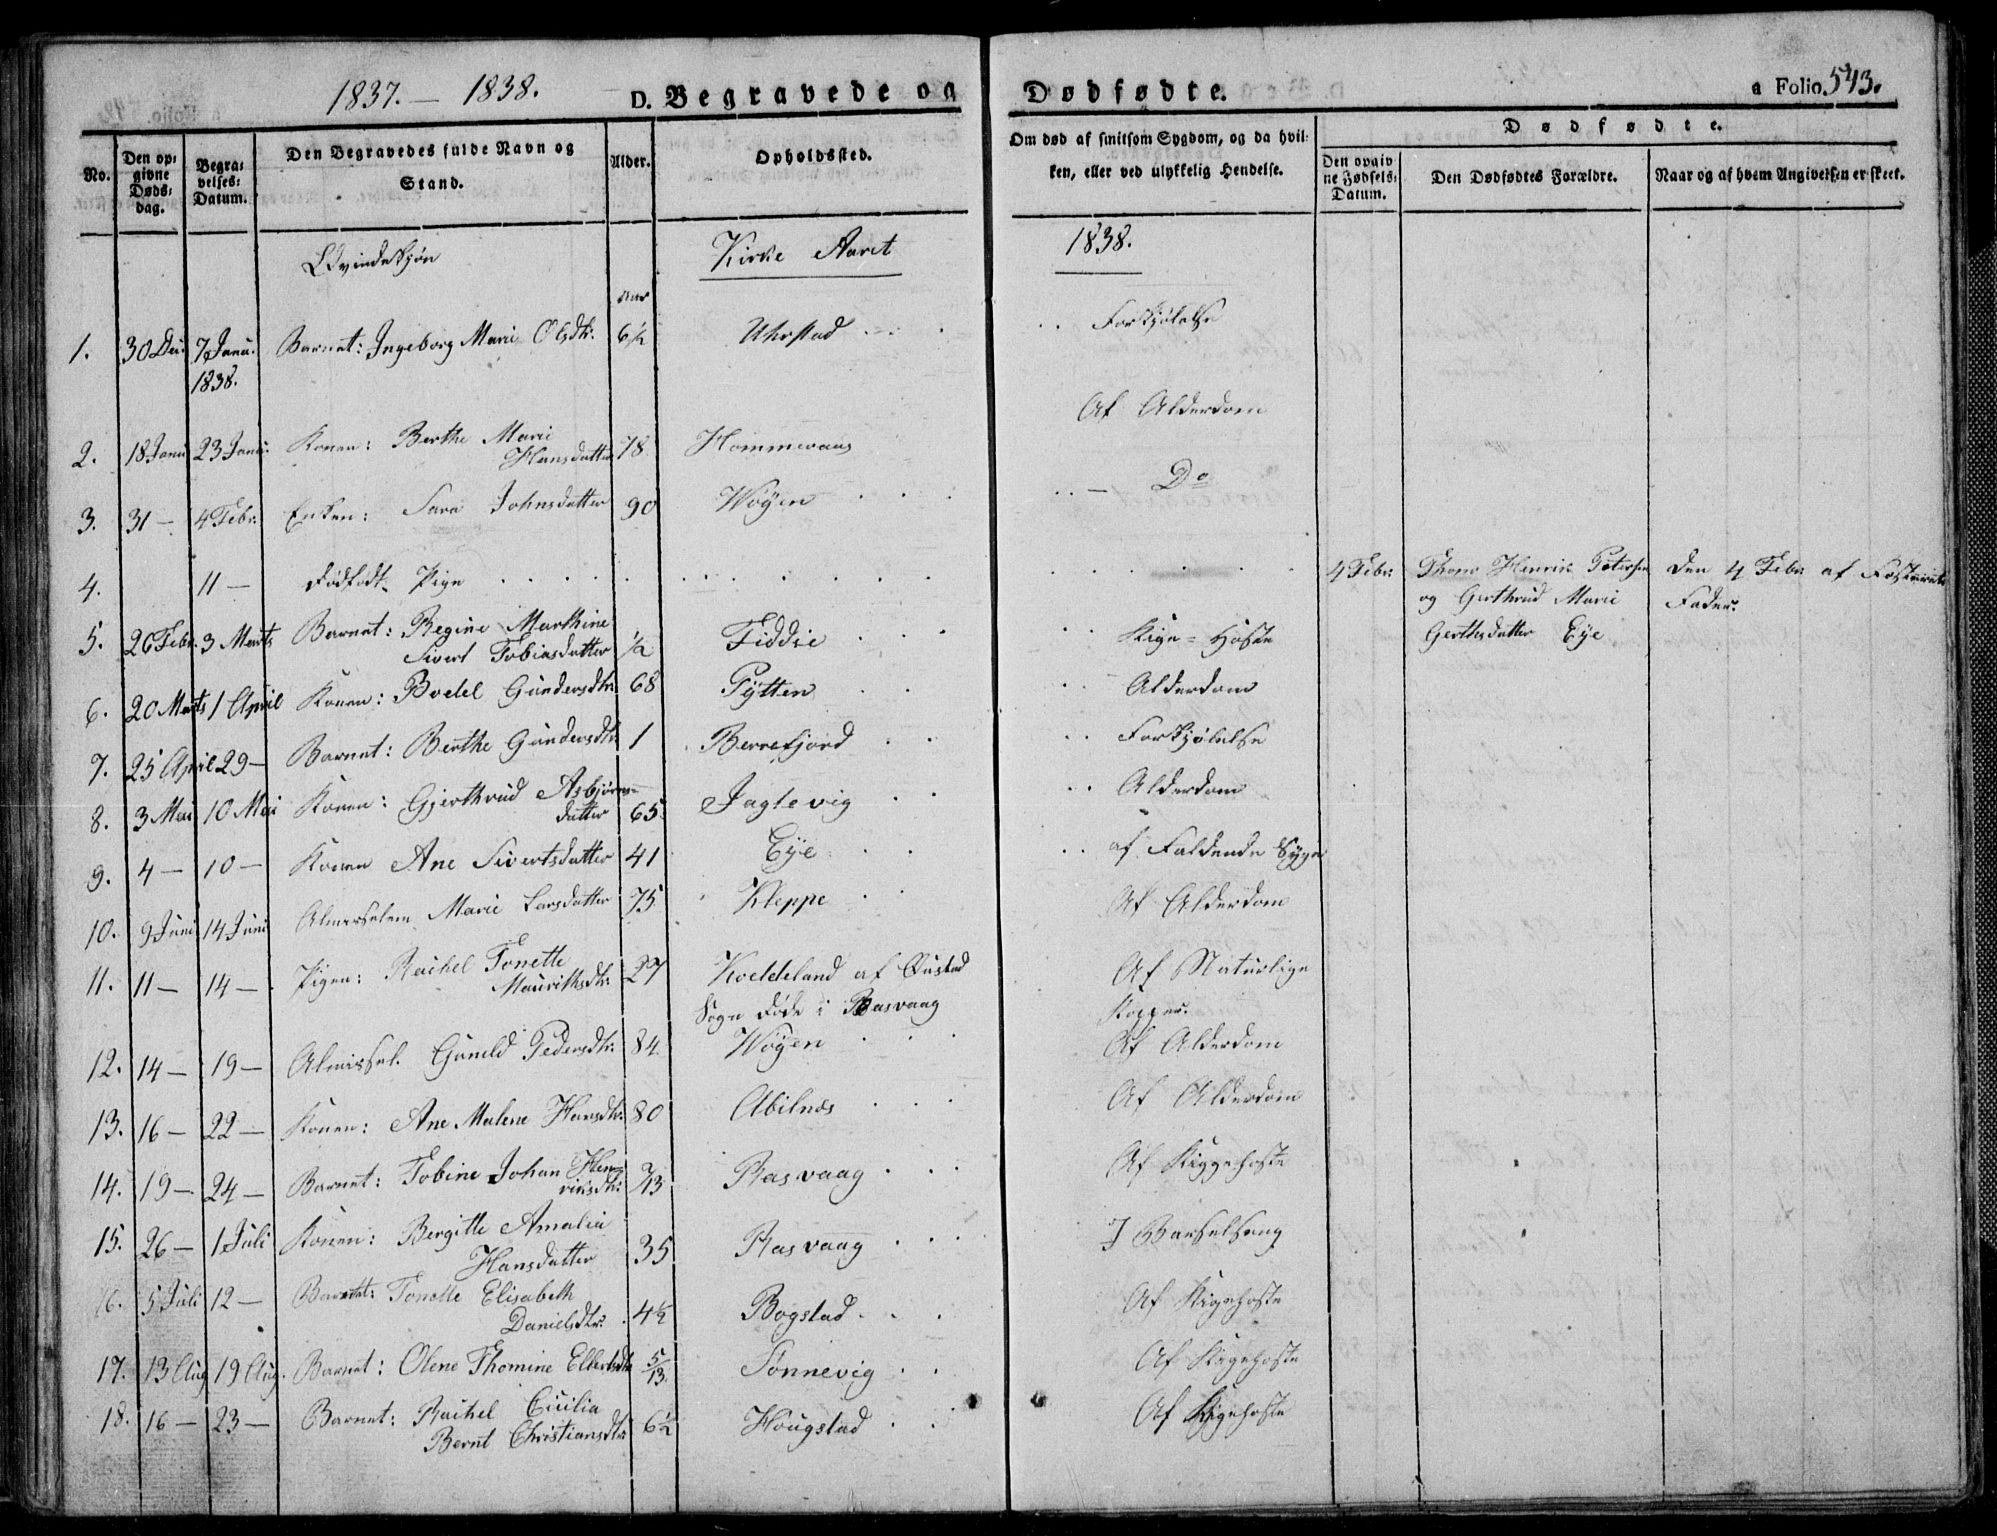 1837. - 1838. D. Begravede og Dødfødte. a Folio. 543.
No. Den opgivne Dødsdag. Begravelses-Datum. Den Begravedes fulde Navn og Stand. Alder. Opholdssted. Om død af smitsom Sygdom, og da hvilken, eller ved ulykkelig Hendelse. Dødfødte. Den opgivne Fødsels-Datum. Den Dødfødtes Forældre. Naar og af hvem Angivelsen er skeet.
Qvindekjøn Kirke Aaret 1838.
Aar
1. 30 Dec. 7 Janu. 1838. Barnet: Ingeborg Marie Olsdtr. 6½ Uhrstad Forkjølelse
2. 18 Janu 23 Janu. Konen: Berthe Marie Hansdatter 78 Hommevaag Af Alderdom
3. 31 — 4 Febr. Enken: Sara Johnsdatter 90 Wøÿen — Do
4. 11 — Dødfødt Pige 4 Febr. Thone Henrik Petersen og Gerthrud Marie Gerthsdatter Eÿe Den 4 Febr. af Fosterets Fader.
5. 26 Febr. 3 Marts Barnet: Regine Marthine Sivert Tobiasdatter ½ Fiddie Kige-Hoste
6. 20 Marts 1 April Konen: Boelel Gundersdtr. 68 Pÿtten Alderdom
7. 25 April 29 — Barnet: Berthe Gundersdtr. 1 Berrefjord Forkjølelse
8. 3 Mai 10 Mai Konen: Gjerthrud Asbjørnsdatter 65 Jagtevig Alderdom
9. 4 — 10 — Konen Ane Sivertsdatter 41 Eÿe af Faldende Syge
10. 9 Juni 14 Juni Almisselem Marie Larsdatter 75 Kleppe Af Alderdom
11. 11 — 14 — Pigen: Rachel Tonette Maurithsdtr. 27 Koeldeland af Qustad Sogn døde i Rasvaag Af Naturlige Kopper.
12. 14 — 19 — Almissel. Guneld Pedersdtr. 84 Wøÿen Af Alderdom
13. 16 — 22 — Konen: Ane Malene Hansdtr. 80 Abilnæs Af Alderdom
14. 19 — 24 — Barnet: Tobine Johan Henriksdtr. 2/13 Rasvaag Af Kiggehoste
15. 26 — 1 Juli Konen: Bergitte Amalia Hansdatter 35 Rasvaag I Barselseng
16. 5 Juli 12 — Barnet: Tonette Elisabeth Danielsdtr. 4½ Bogstad Af Kigehoste
17. 13 Aug 19 Aug. Barnet: Olene Thomine Ellertsdtr 5/13 Sønnevig Af Kigehoste
18. 16 — 23 — Barnet: Rachel Cicilia Bernt Christiansdtr 6½ Hougstad Af Kigehoste